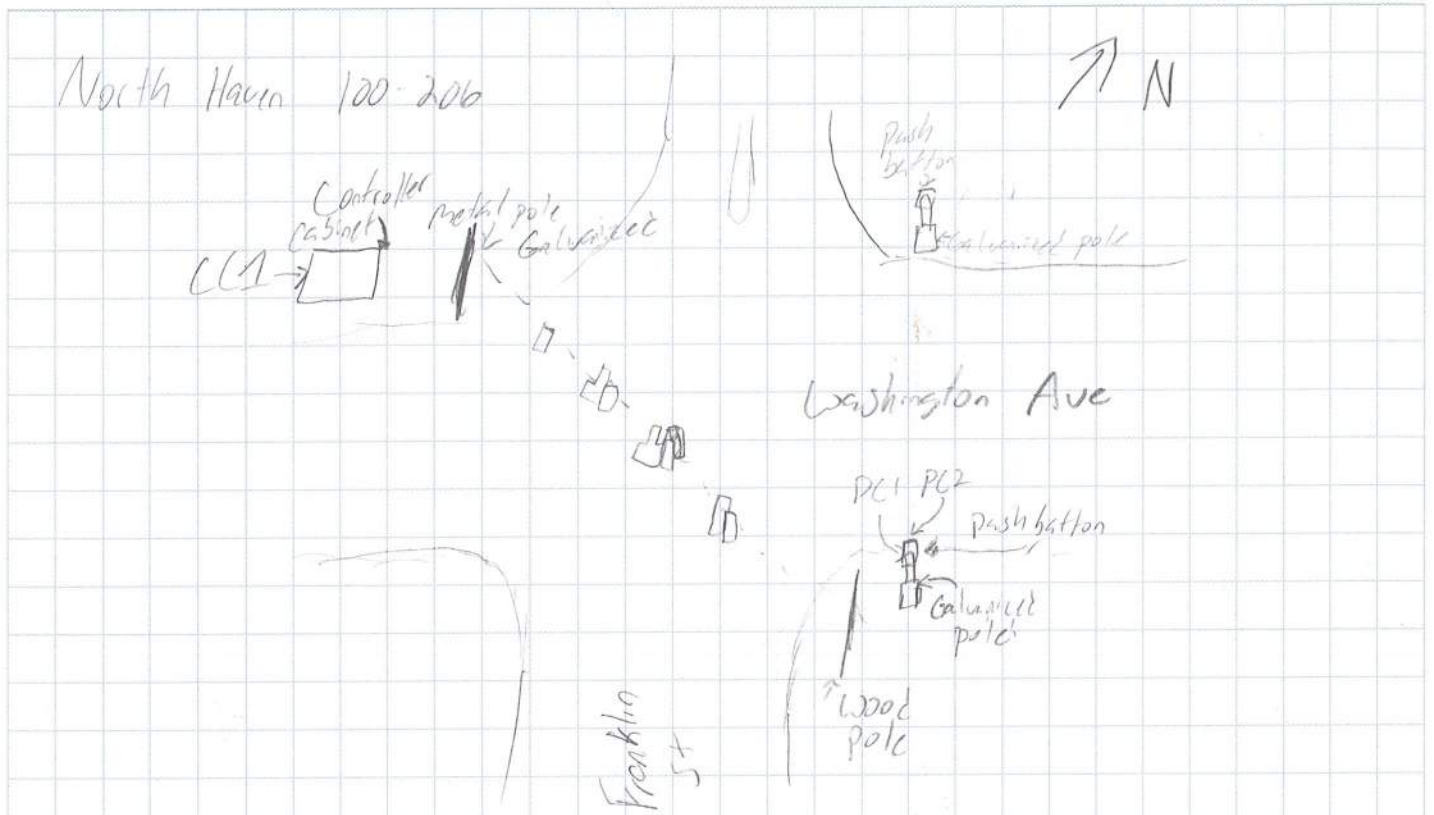 North Haven 100-206
N
Push
button
Controller
cabinet
metal pole
Galvanized
Galvanized pole
CC1
Washington Ave
PC1 PC2
push button
Galvanized
pole
Wood
pole
Franklin
St